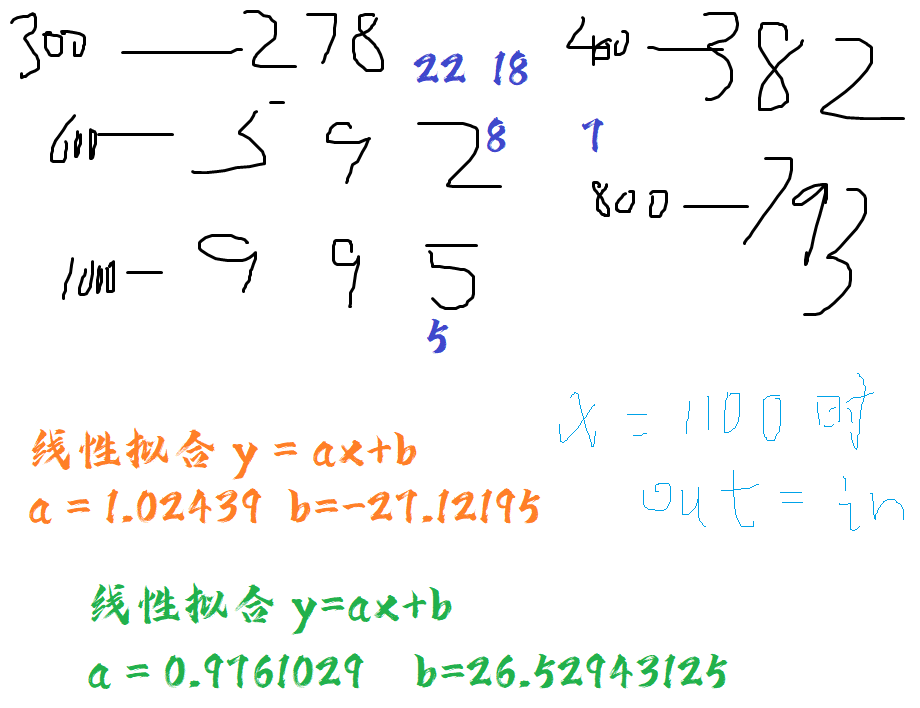 300 — 278
22 18
400 — 382
600 — 592
8
7
800 — 793
1000 — 995
5
x = 1100 时
out = in
线性拟合 y = ax+b
a = 1.02439 b=-27.12195
线性拟合 y=ax+b
a = 0.9761029 b=26.52943125